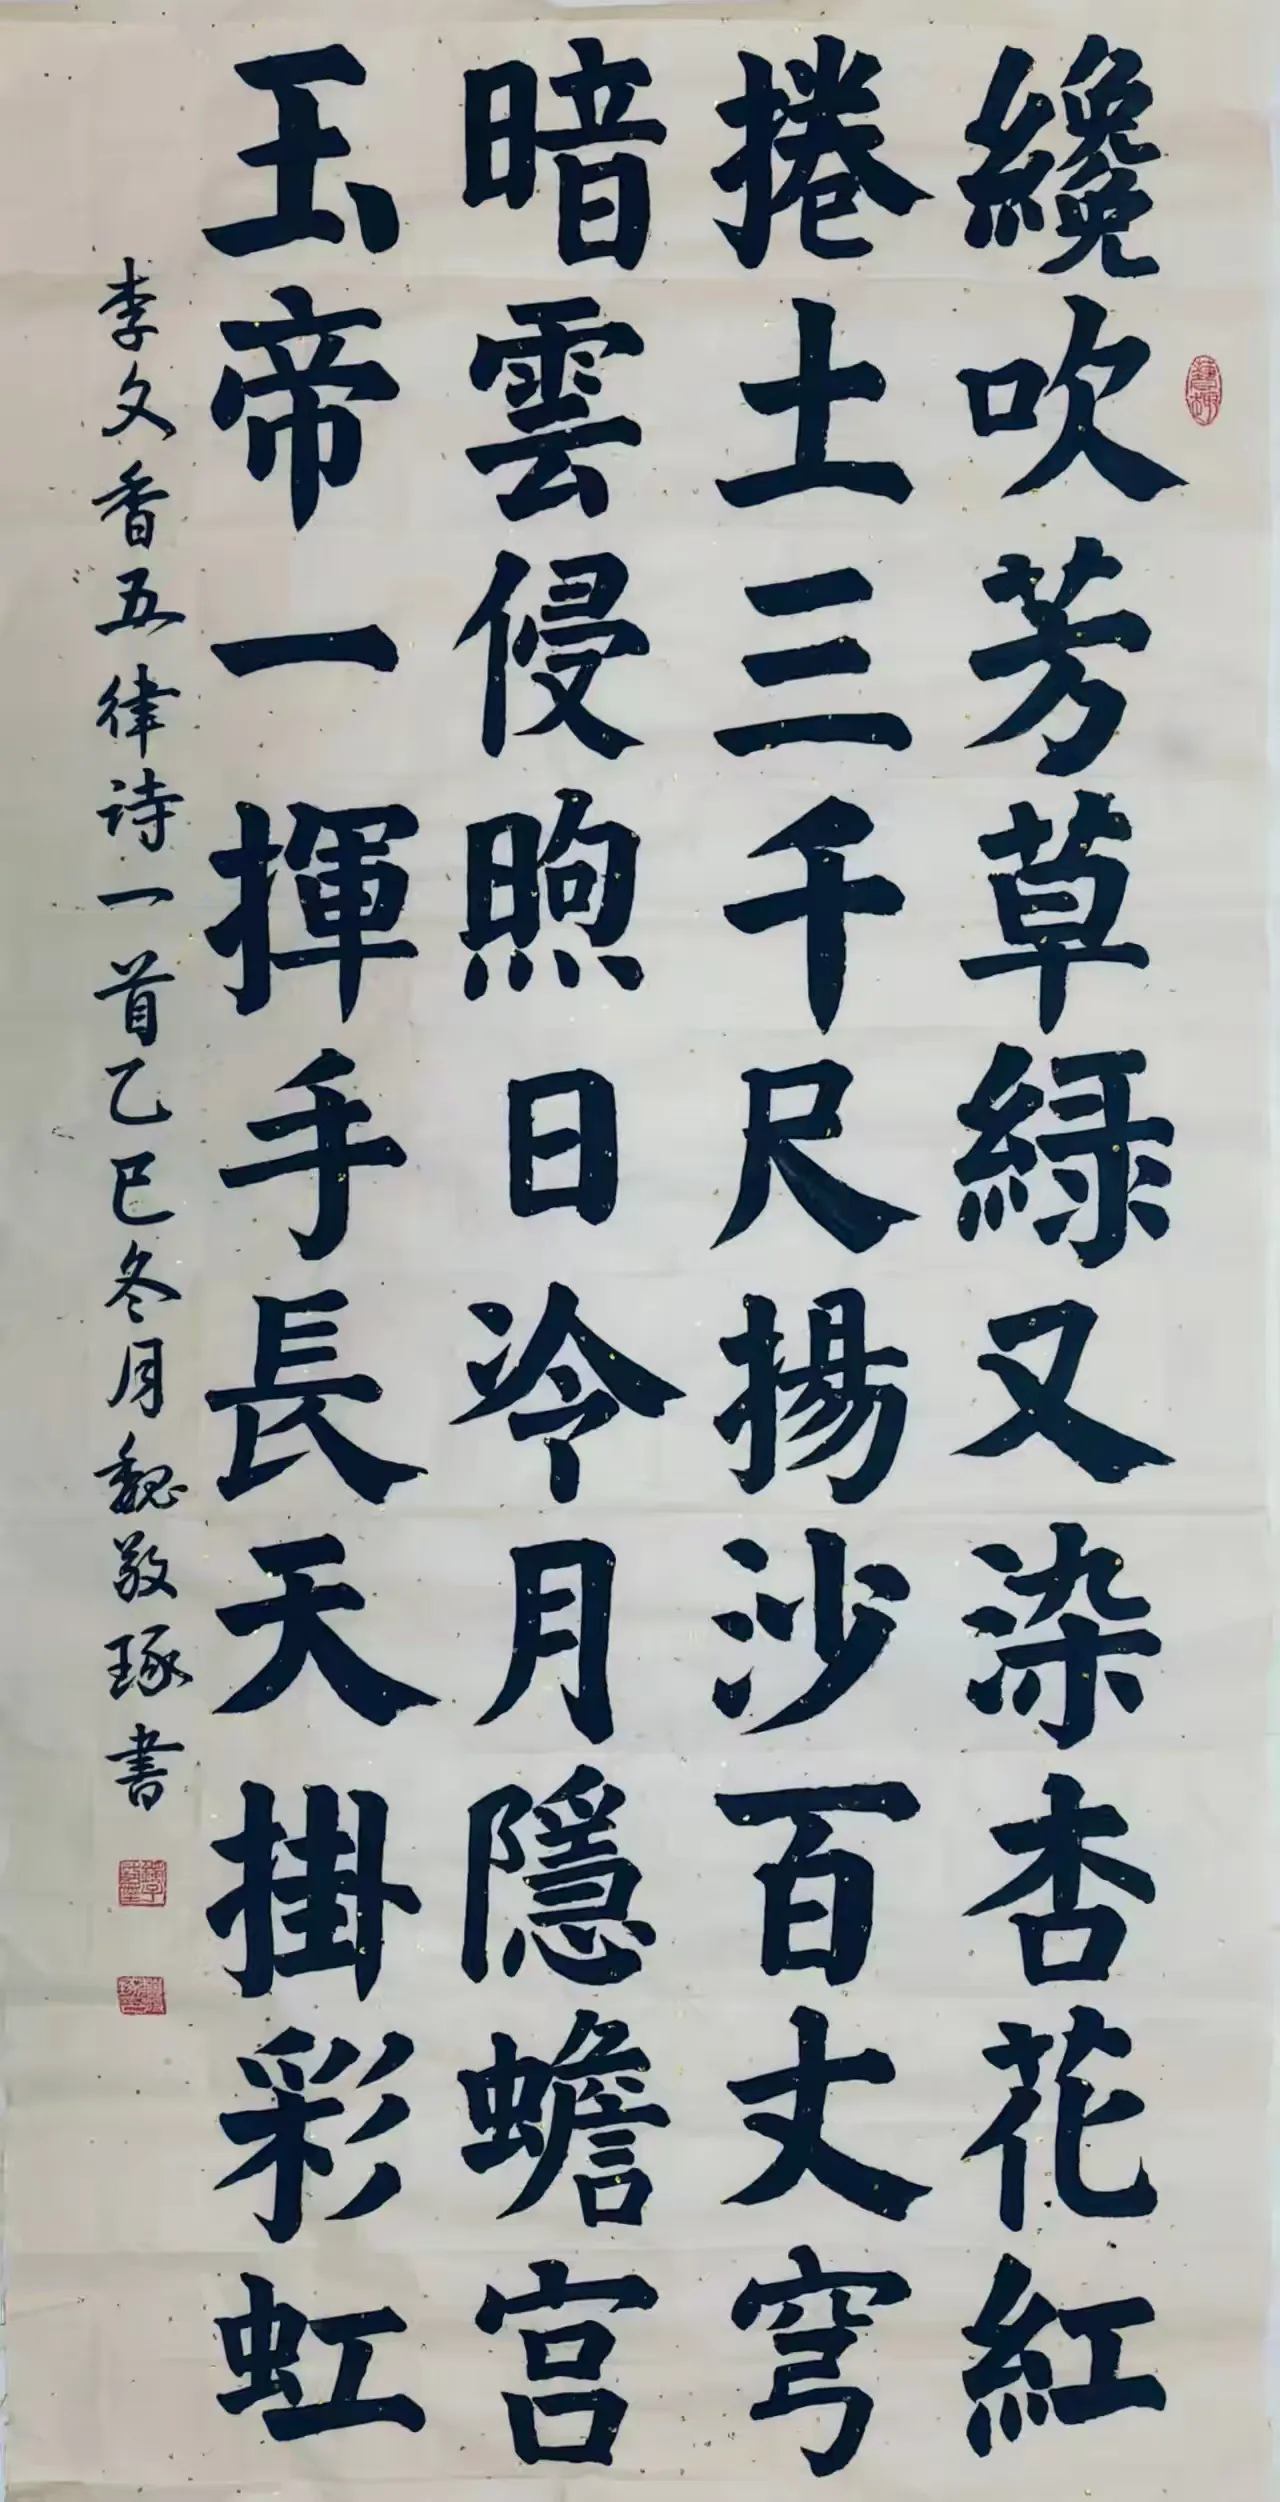 纔吹芳草緑又染杏花紅
捲土三千尺揚沙百丈穹
暗雲侵煦日冷月隱蟾宫
玉帝一揮手長天掛彩虹
李文香五律诗一首乙巳冬月魏敬琢書